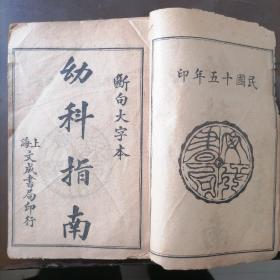 民國十五年印
文成書局
斷句大字本
幼科指南
上海文成書局印行